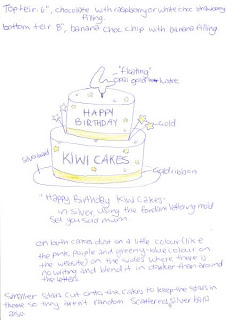 Top teir 6", chocolate with raspberry or white choc strawberry
filling.
bottom teir 8", banana choc chip with banana filling.
"floating"
HAPPY
BIRTHDAY
Gold
KIWI CAKES
Silver board
Gold ribbon
"Happy Birthday Kiwi Cakes"
in silver, using the fondant lettering mold
set you said mum.
on both cakes dust on a little colour (like
the pink, purple and greeny-blue colour on
the website) on the sides where there is
no writing and blend it in darker than around
the letters.
Smaller stars cut onto the cakes to keep the stars in
theme so they aren't random. Scattered silver balls
also.